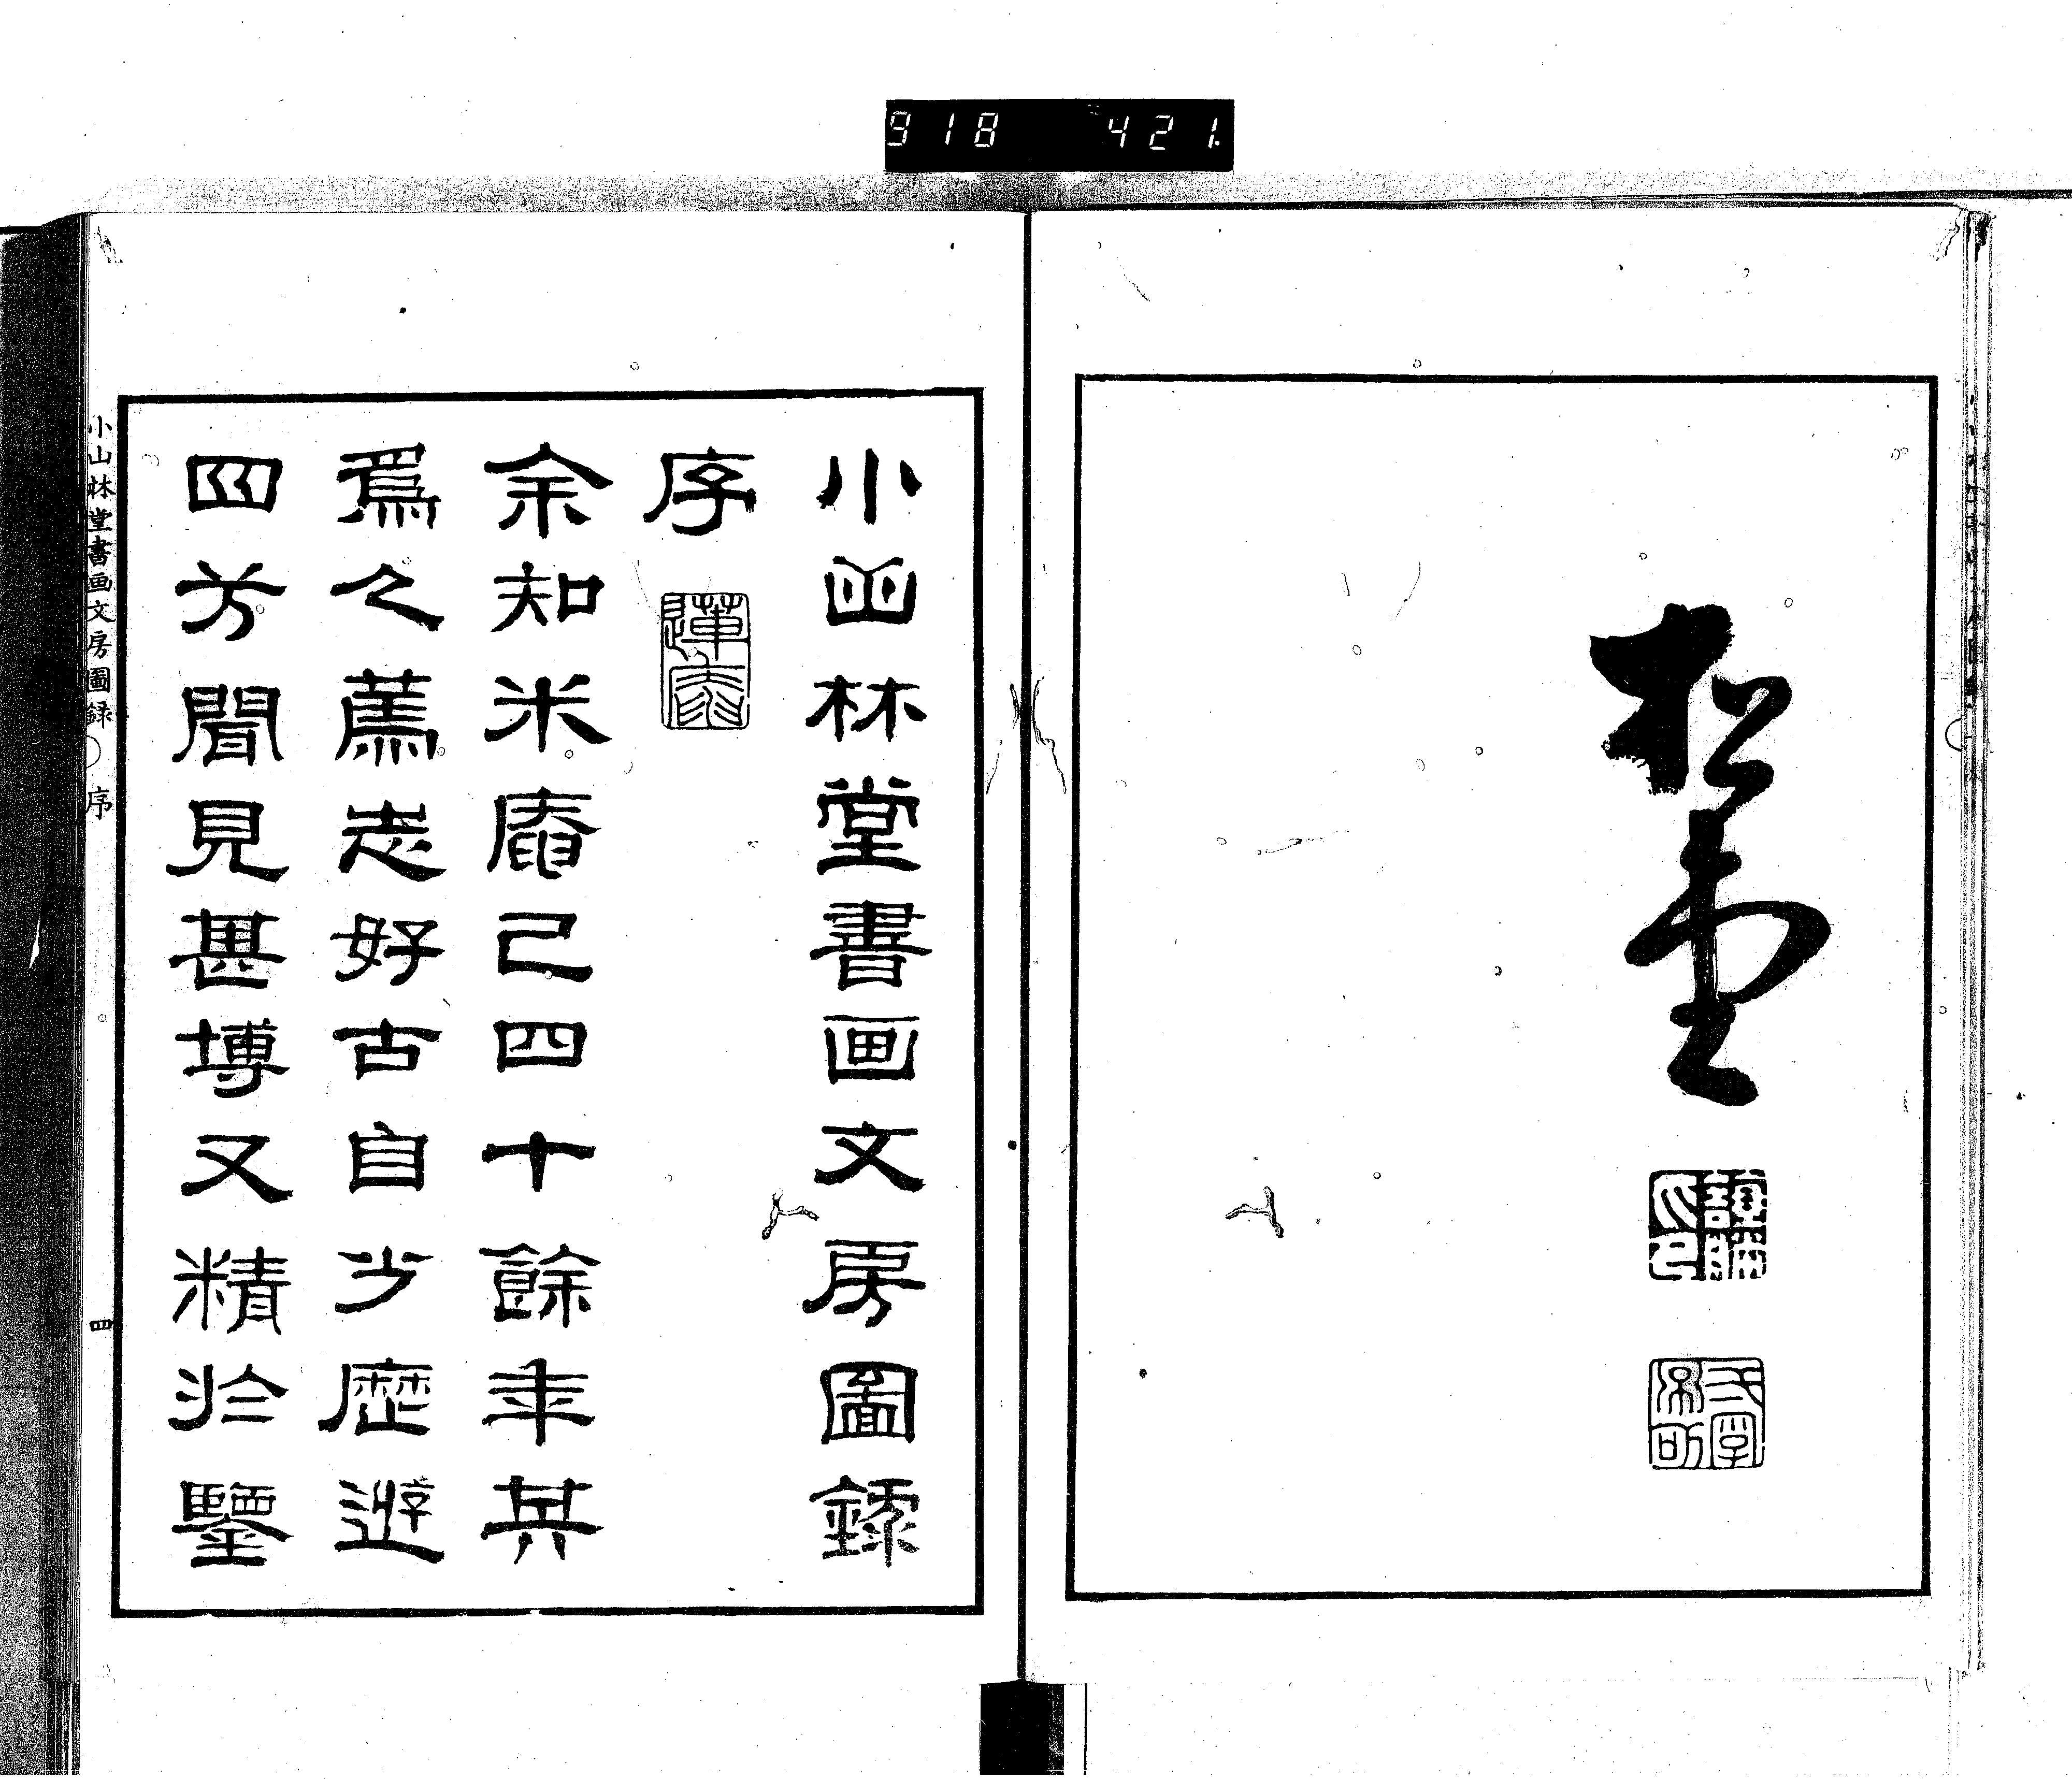 918 421.
松堂
小山林堂書画文房圖録
序
余知米庵已四十餘年其
爲人篤志好古自少歴遊
四方聞見甚博又精於鑒
小山林堂書画文房圖録 序 四